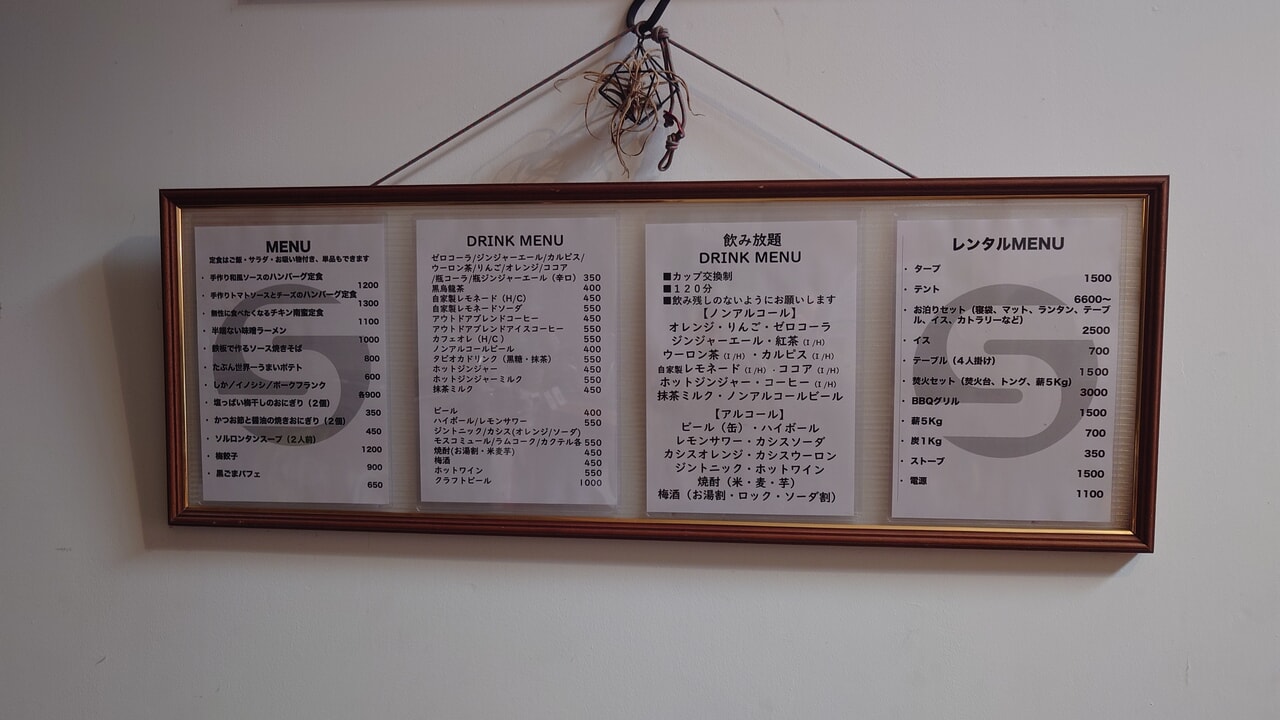 MENU
定食はご飯・サラダ・お吸い物付き、単品もできます
・ 手作り和風ソースのハンバーグ定食
1200
・ 手作りトマトソースとチーズのハンバーグ定食
1300
・ 無性に食べたくなるチキン南蛮定食
1100
・ 半端ない味噌ラーメン
1000
・ 鉄板で作るソース焼きそば
800
・ たぶん世界一うまいポテト
600
・ しか/イノシシ/ポークフランク
各900
・ 塩っぱい梅干しのおにぎり（2個）
350
・ かつお節と醤油の焼きおにぎり（2個）
450
・ ソルロンタンスープ（2人前）
1200
・ 梅餃子
900
・ 黒ごまパフェ
650
DRINK MENU
ゼロコーラ/ジンジャーエール/カルピス/
ウーロン茶/りんご/オレンジ/ココア
/瓶コーラ/瓶ジンジャーエール（辛口） 350
黒烏龍茶 400
自家製レモネード（H/C） 450
自家製レモネードソーダ 550
アウトドアブレンドコーヒー 450
アウトドアブレンドアイスコーヒー 550
カフェオレ（H/C ） 550
ノンアルコールビール 400
タピオカドリンク（黒糖・抹茶） 550
ホットジンジャー 450
ホットジンジャーミルク 550
抹茶ミルク 450
ビール 400
ハイボール/レモンサワー 550
ジントニック/カシス(オレンジ/ソーダ)
モスコミュール/ラムコーク/カクテル各 550
焼酎(お湯割・米麦芋) 450
梅酒 450
ホットワイン 550
クラフトビール 1000
飲み放題
DRINK MENU
■カップ交換制
■１２０分
■飲み残しのないようにお願いします
【ノンアルコール】
オレンジ・りんご・ゼロコーラ
ジンジャーエール・紅茶（I /H）
ウーロン茶（I /H）・カルピス（I /H）
自家製レモネード（I /H）・ココア（I /H）
ホットジンジャー・コーヒー（I /H）
抹茶ミルク・ノンアルコールビール
【アルコール】
ビール（缶）・ハイボール
レモンサワー・カシスソーダ
カシスオレンジ・カシスウーロン
ジントニック・ホットワイン
焼酎（米・麦・芋）
梅酒（お湯割・ロック・ソーダ割）
レンタルMENU
・ タープ
1500
・ テント
6600〜
・ お泊りセット（寝袋、マット、ランタン、テーブ
ル、イス、カトラリーなど）
2500
・ イス
700
・ テーブル（４人掛け）
1500
・ 焚火セット（焚火台、トング、薪５Kg）
3000
・ BBQグリル
1500
・ 薪５Kg
700
・ 炭１Kg
350
・ ストーブ
1500
・ 電源
1100